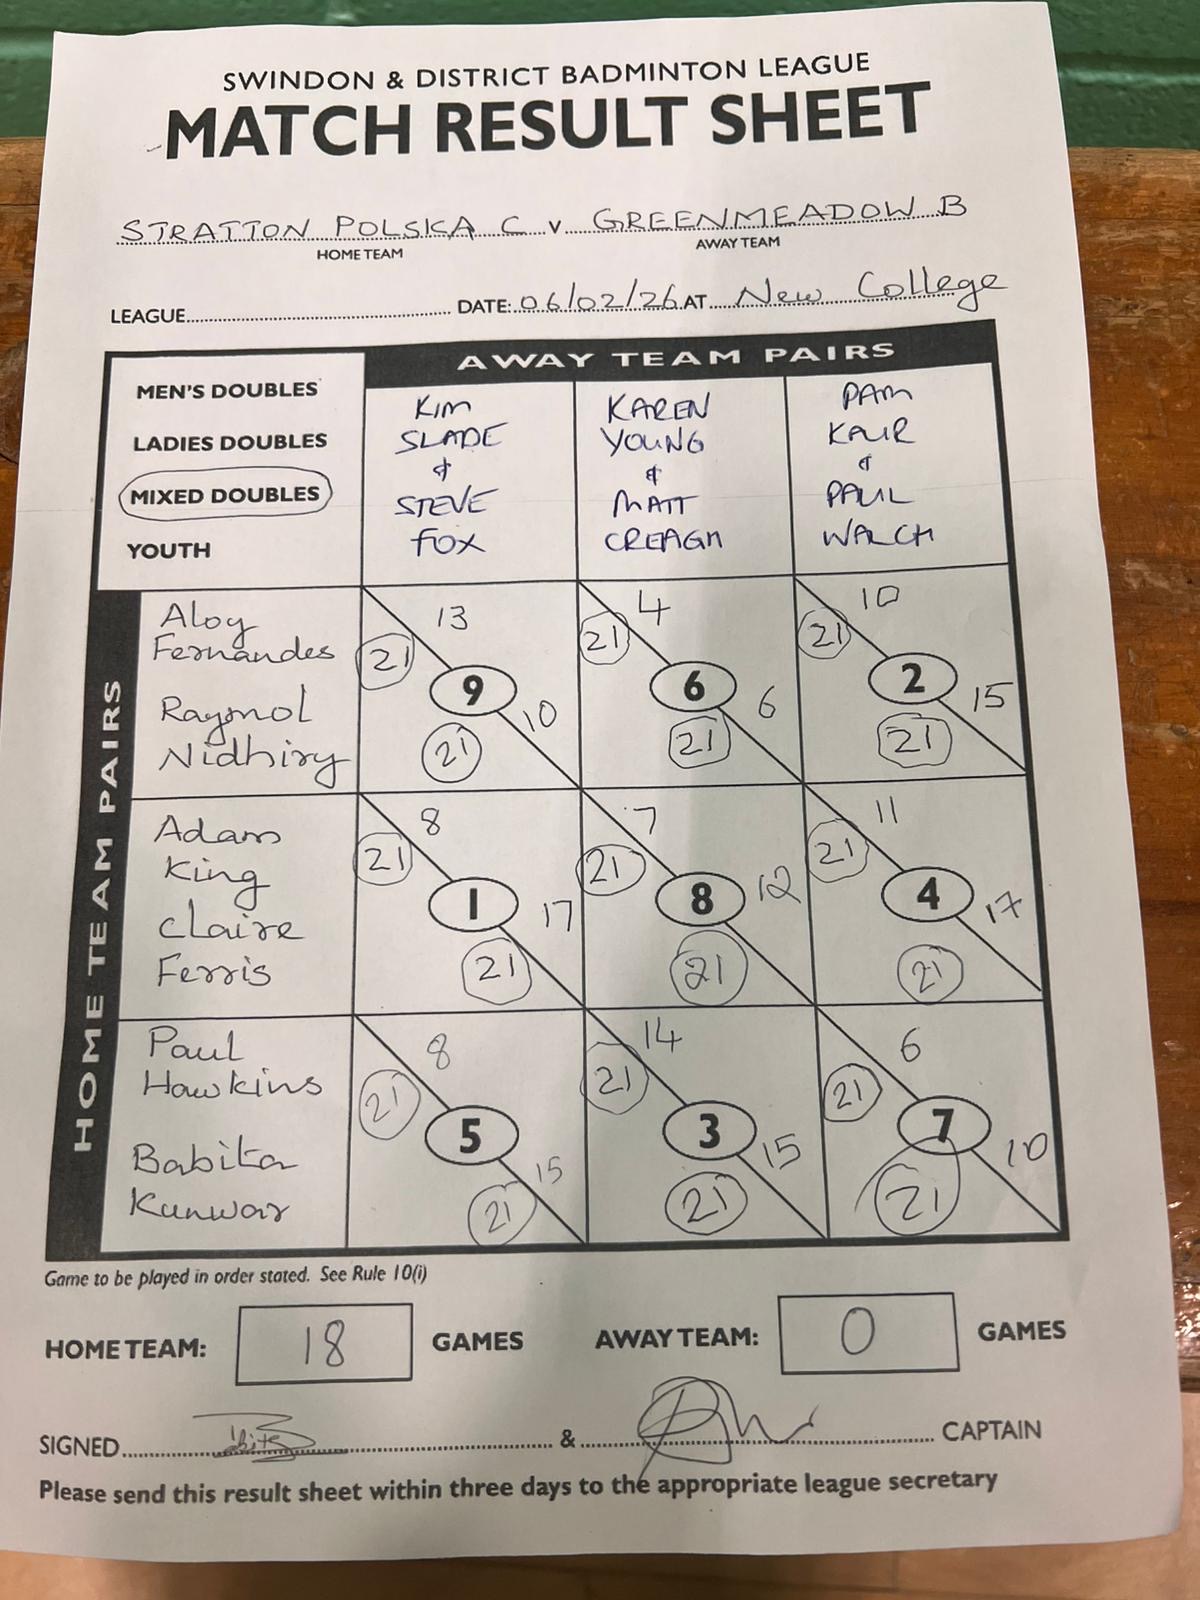 SWINDON & DISTRICT BADMINTON LEAGUE
MATCH RESULT SHEET
STRATTON POLSKA C v GREENMEADOW B
HOME TEAM AWAY TEAM
LEAGUE DATE: 06/02/26 AT New College
AWAY TEAM PAIRS
MEN'S DOUBLES
LADIES DOUBLES
MIXED DOUBLES
YOUTH
KIM
SLADE
&
STEVE
FOX
KAREN
YOUNG
&
MATT
CREAGH
PAM
KAUR
&
PAUL
WALCH
HOME TEAM PAIRS
Aloy
Fernandes
Raymol
Nidhiry
13
21
9
10
21
4
21
6
6
21
10
21
2
15
21
Adam
King
Claire
Ferris
8
21
1
17
21
7
21
8
12
21
11
21
4
17
21
Paul
Hawkins
Babita
Kunwar
8
21
5
15
21
14
21
3
15
21
6
21
7
10
21
Game to be played in order stated. See Rule 10(i)
HOME TEAM: 18 GAMES AWAY TEAM: 0 GAMES
SIGNED & CAPTAIN
Please send this result sheet within three days to the appropriate league secretary